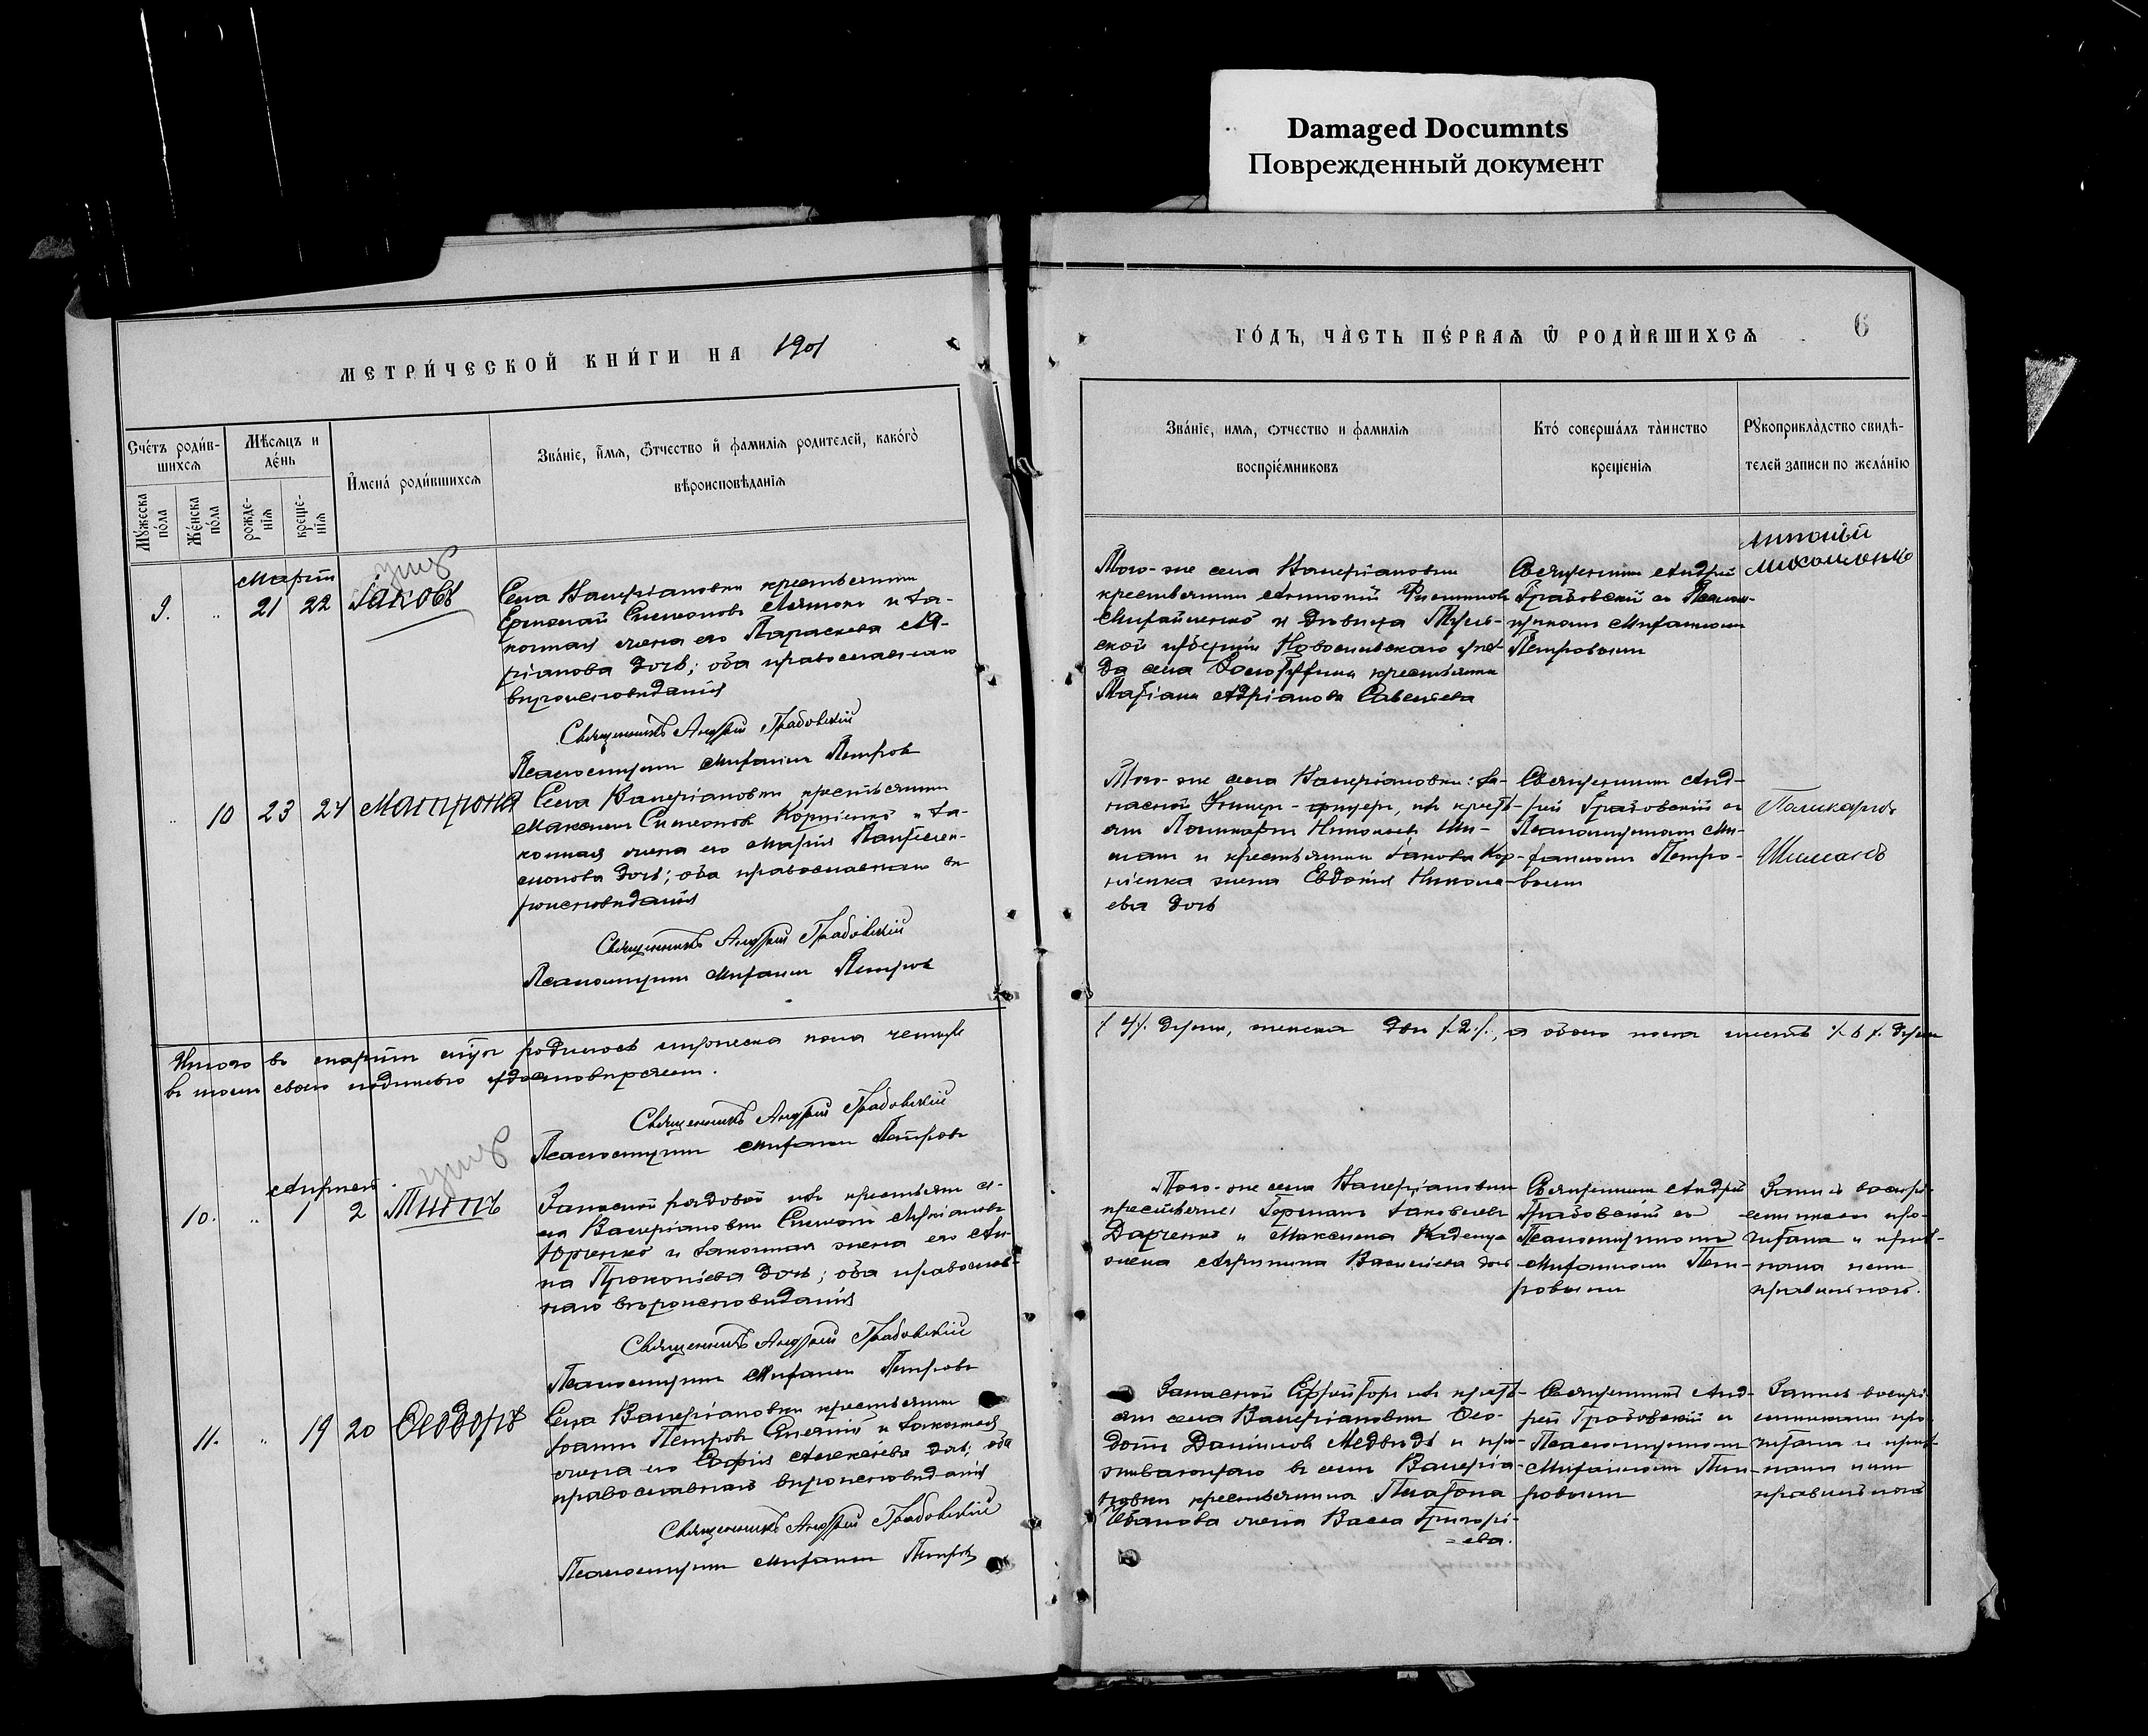 Damaged Documnts
Поврежденный документ
МЕТРИ́ЧЕСКОЙ КНИ́ГИ НА 1901
ГО́ДЪ, ЧА̀СТЬ ПЕ́РВАѦ Ѿ РОДИ́ВШИХСѦ
6
Сче́тъ роди́в-
шихсѧ
Мѣ́сяцъ и
де́нь
Мꙋ́жеска
по́ла
Же́нска
по́ла
рожде-
нїѧ
креще-
нїѧ
И҆мена́ роди́вшихсѧ
Зва́нїе, и҆́мѧ, ѻ҆́тчество и҆ фамилїѧ родителей, како́гѡ
вѣроисповѣданїѧ
Зва́нїе, имѧ, ѻтчество и фамилїѧ
воспрїе́мниковъ
Кто́ соверша́лъ та̀инство
креще́нїѧ
Рꙋкоприкла̀дство свидѣ-
телей записи по жела́нїю
Мартъ
9. 21 22 Іаковъ
Села Валеріановки крестьянинъ
Симеоновъ и за-
конная жена его Параскева Ад-
ріанова дочь; оба православнаго
вѣроисповѣданія
Священникъ Андрей Грабовскій
Псаломщикъ Митрофанъ Петровъ
Того-же села Валеріановки
крестьянинъ Антоній
и дѣвица Туль-
ской губерніи Новосильскаго уѣз-
да села крестьянка
Адріанова Савельева
Священникъ Андрей
Грабовскій съ Псалом-
щикомъ Митрофаномъ
Петровымъ
Антоній
10 23 24 Матрона
Села Валеріановки крестьянинъ
Максимъ Симеоновъ Корніенко и за-
конная жена его Марія
дочь; оба православнаго вѣ-
роисповѣданія
Священникъ Андрей Грабовскій
Псаломщикъ Митрофанъ Петровъ
Того-же села Валеріановки: за-
пасной Унтеръ-офицеръ, изъ кресть-
янъ Поликарпъ Николаевъ Ши-
манъ и крестьянина Іакова Кор-
ніенка жена Евдокія Никола-
ева дочь
Священникъ Анд-
рей Грабовскій съ
Псаломщикомъ Ми-
трофаномъ Петро-
вымъ
Поликарпъ
Шиманъ
Итого въ мартѣ мѣсяцѣ родилось мужеска пола четыре
/ 4 /. души, женска двѣ /. 2 /., а обоего пола шесть /. 6 /. душъ
въ томъ своею подписью удостовѣряемъ.
Священникъ Андрей Грабовскій
Псаломщикъ Митрофанъ Петровъ
Апрѣль
10. 1 2 Титъ
Запасной рядовой изъ крестьянъ се-
ла Валеріановки Симеонъ
Юрченко и законная жена его Ан-
на Прокопіева дочь; оба православ-
наго вѣроисповѣданія
Священникъ Андрей Грабовскій
Псаломщикъ Митрофанъ Петровъ
Того-же села Валеріановки
крестьяне: Германъ Іаковлевъ
Дарченко и Максима
жена Агрипина Васильева дочь
Священникъ Андрей
Грабовскій съ
Псаломщикомъ
Митрофаномъ Пет-
ровымъ
Запись воспрі-
емникамъ про-
читана и приз-
нана ими
правильной.
11. 19 20 Ѳеодоръ
Села Валеріановки крестьянинъ
Іоаннъ Петровъ и законная
жена его Софія Алексѣева дочь; оба
православнаго вѣроисповѣданія
Священникъ Андрей Грабовскій
Псаломщикъ Митрофанъ Петровъ
Запасной Ефрейторъ изъ кресть-
янъ села Валеріановки Ѳео-
дотъ Даниловъ Медвѣдь и про-
живающаго въ селѣ Валеріа-
новки крестьянина Платона
Иванова жена Васса Григорі-
ева.
Священникъ Анд-
рей Грабовскій съ
Псаломщикомъ
Митрофаномъ Пет-
ровымъ
Запись воспрі-
емникамъ про-
читана и приз-
нана ими
правильной